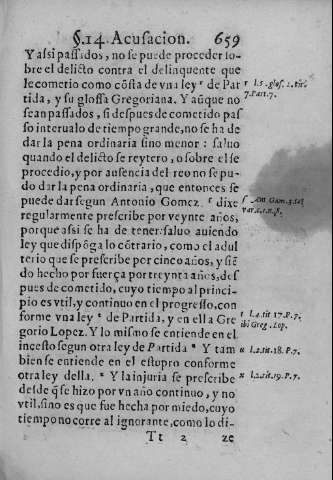 §.14. Acusacion. 659
Y assi passados, no se puede proceder so-
bre el delicto contra el delinquente que
le cometio como cõsta de vna ley r de Par
tida, y su glossa Gregoriana. Y aũque no
sean passados, si despues de cometido pas
so interualo de tiempo grande, no se ha de
dar la pena ordinaria sino menor: saluo
quando el delicto se reytero, o sobre el se
procedio, y por ausencia del reo no se pu-
do dar la pena ordinaria, que entonces se
puede dar segun Antonio Gomez. s dixe
regularmente prescribe por veynte años,
porque assi se ha de tener. saluo auiendo
ley que dispõga lo cõtrario, como el adul
terio que se prescribe por cinco años, y siẽ
do hecho por fuerça por treynta años, des
pues de cometido, cuyo tiempo al princi-
pio es vtil, y continuo en el progresso, con
forme vna ley t de Partida, y en ella Gre
gorio Lopez. Y lo mismo se entiende en el
incesto segun otra ley de Partida u Y tam
bien se entiende en el estupro conforme
otra ley della. x Y la injuria se prescribe
desde q̃ se hizo por vn año continuo, y no
vtil. sino es que fue hecha por miedo, cuyo
tiempo no corre al ignorante, como lo di-
Tt 2 ze
r l.5. glos. 2. tit.
7. Part. 7.
s Ant Gom. 3. to.
var. c. 1. n. 8.
t l.4. tit 17. P. 7.
ibi Greg. Lop.
u l.2. tit. 18. P. 7.
x l.2. tit. 19. P. 7.